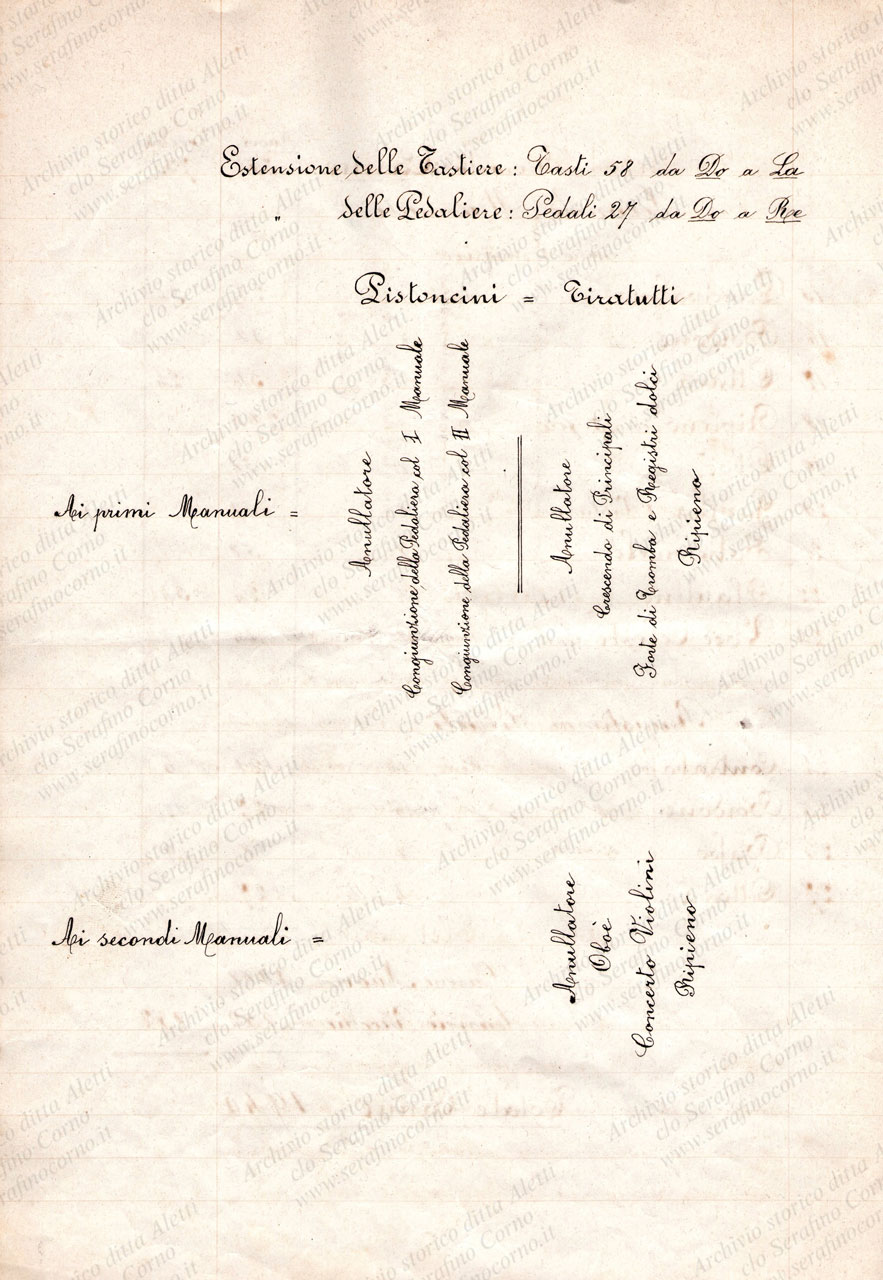 Estensione delle Tastiere : Tasti 58 da Do a La
" delle Pedaliere : Pedali 27 da Do a Re
Pistoncini = Tiratutti
Ai primi Manuali =
Anullatore
Congiunzione della Pedaliera col I Manuale
Congiunzione della Pedaliera col II Manuale
Anullatore
Crescendo di Principali
Forte di Tromba e Registri dolci
Ripieno
Ai secondi Manuali =
Anullatore
Oboè
Concerto Violini
Ripieno
Archivio storico ditta Aletti
c/o Serafino Corno
www.serafinocorno.it